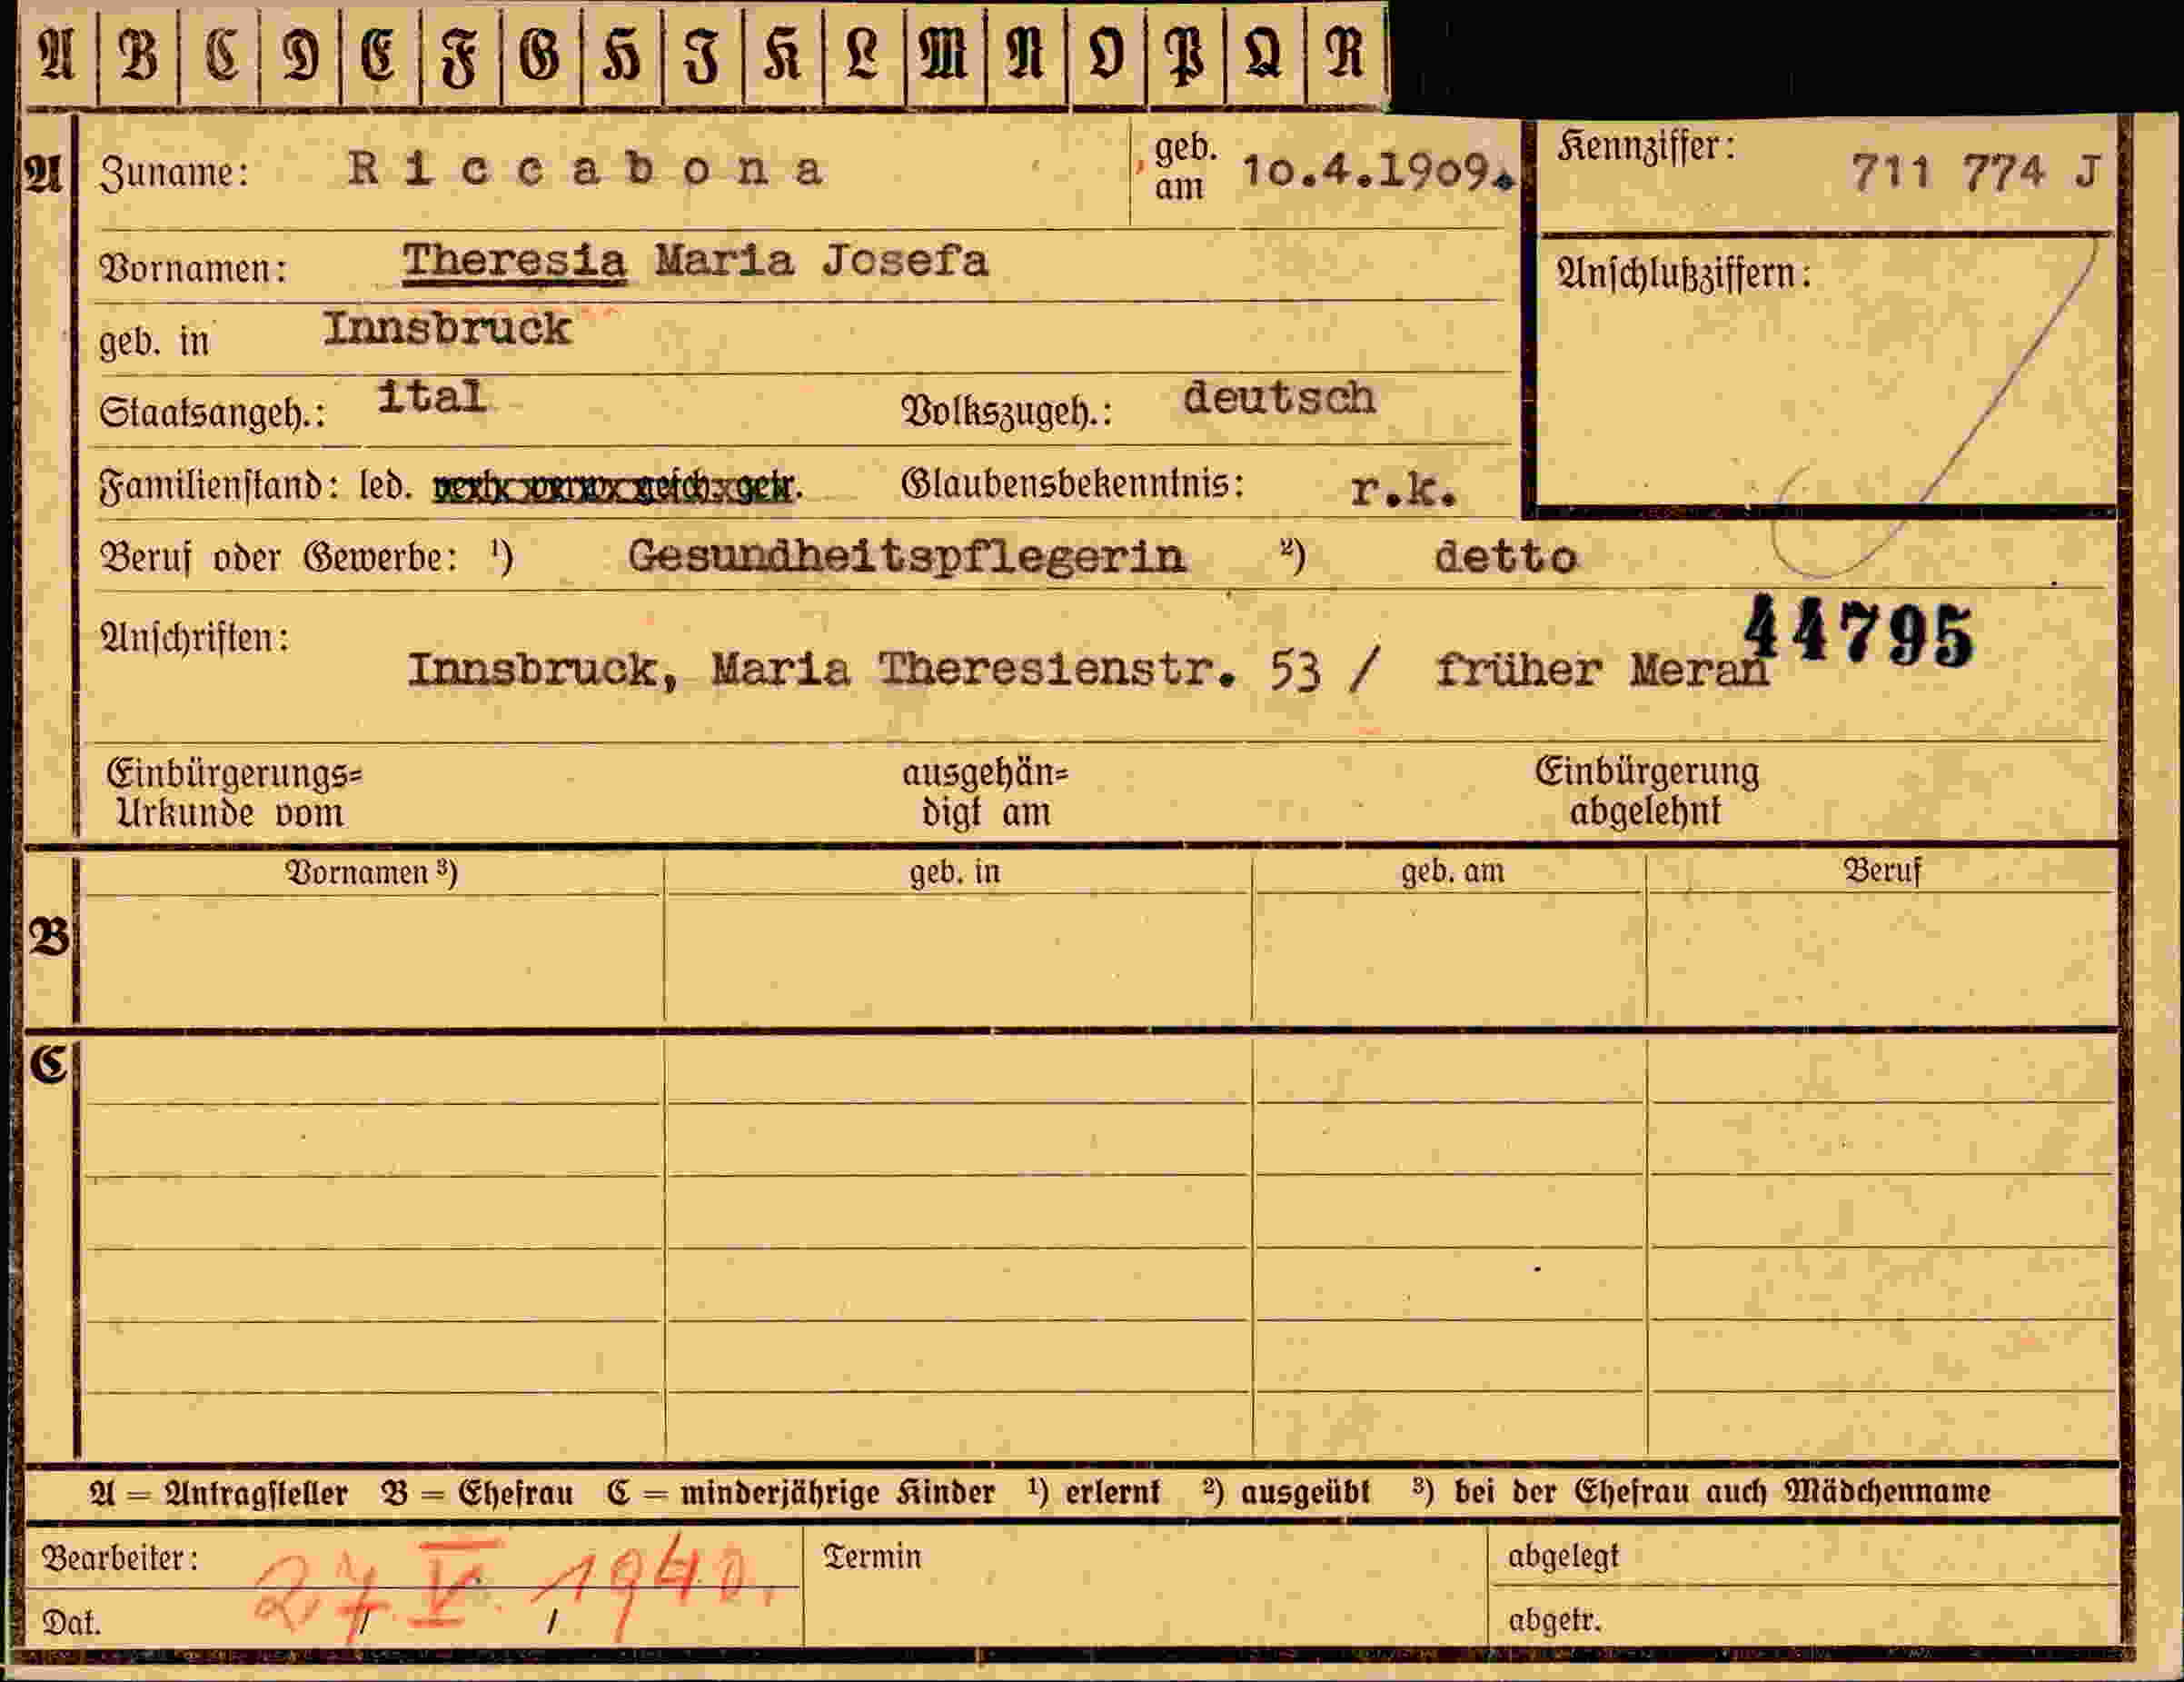 A B C D E F G H I K L M N O P Q R
A Zuname: Riccabona geb. am 10.4.1909. Kennziffer: 711 774 J
Vornamen: Theresia Maria Josefa Anschlußziffern:
geb. in Innsbruck
Staatsangeh.: ital Volkszugeh.: deutsch
Familienstand: led. verh. verw. gesch. getr. Glaubensbekenntnis: r.k.
Beruf oder Gewerbe: ¹) Gesundheitspflegerin ²) detto
44795
Anschriften: Innsbruck, Maria Theresienstr. 53 / früher Meran
Einbürgerungs= ausgehän= Einbürgerung
Urkunde vom digt am abgelehnt
Vornamen ³) geb. in geb. am Beruf
B
C
A = Antragsteller B = Ehefrau C = minderjährige Kinder ¹) erlernt ²) ausgeübt ³) bei der Ehefrau auch Mädchenname
Bearbeiter: 27. V. 1940. Termin abgelegt
Dat. / / abgetr.